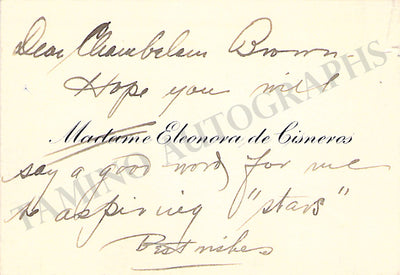 Dear Chamberlain Brown
Hope you will
Madame Eleonora de Cisneros
say a good word for me
to aspiring "stars"
Best wishes
TAMINO AUTOGRAPHS